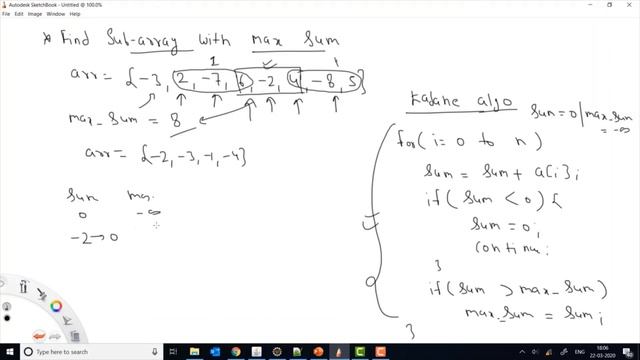 Autodesk SketchBook - Untitled @ 100.0%
File Edit Image Window Help
* Find Sub-array with max sum
1 1
arr = {-3, 2, -7, 6, -2, 4, -8, 5}
max_sum = 8
arr = {-2, -3, -1, -4}
sum max.
0 -∞
-2→0
Kadane algo
sum=0 / max_sum = -∞
for(i=0 to n)
sum = sum + a[i];
if(sum < 0) {
sum = 0;
continue;
}
if(sum > max_sum)
max_sum = sum;
}
Type here to search
ENG
18:06
22-03-2020